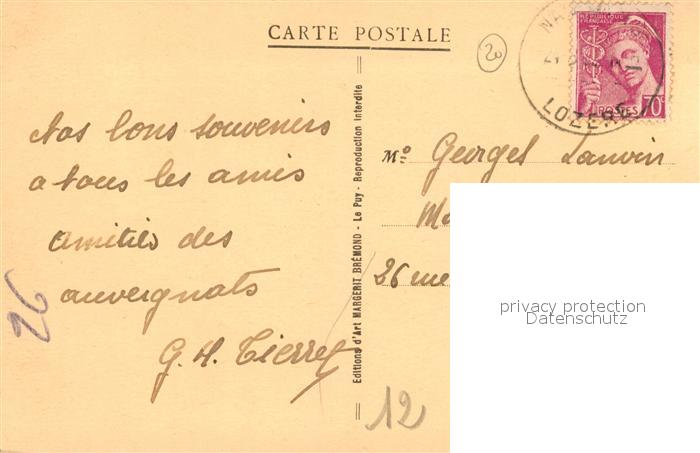 CARTE POSTALE
20
REPUBLIQUE FRANÇAISE
POSTES 70c
LOZERE
Nos bons souvenirs
a tous les amis
amitiés des
auvergnats
G. H. Tierret
26
Editions d'Art MARGERIT BRÉMOND - Le Puy - Reproduction Interdite
Mo Georges Lanvin
26 rue
privacy protection
Datenschutz
12